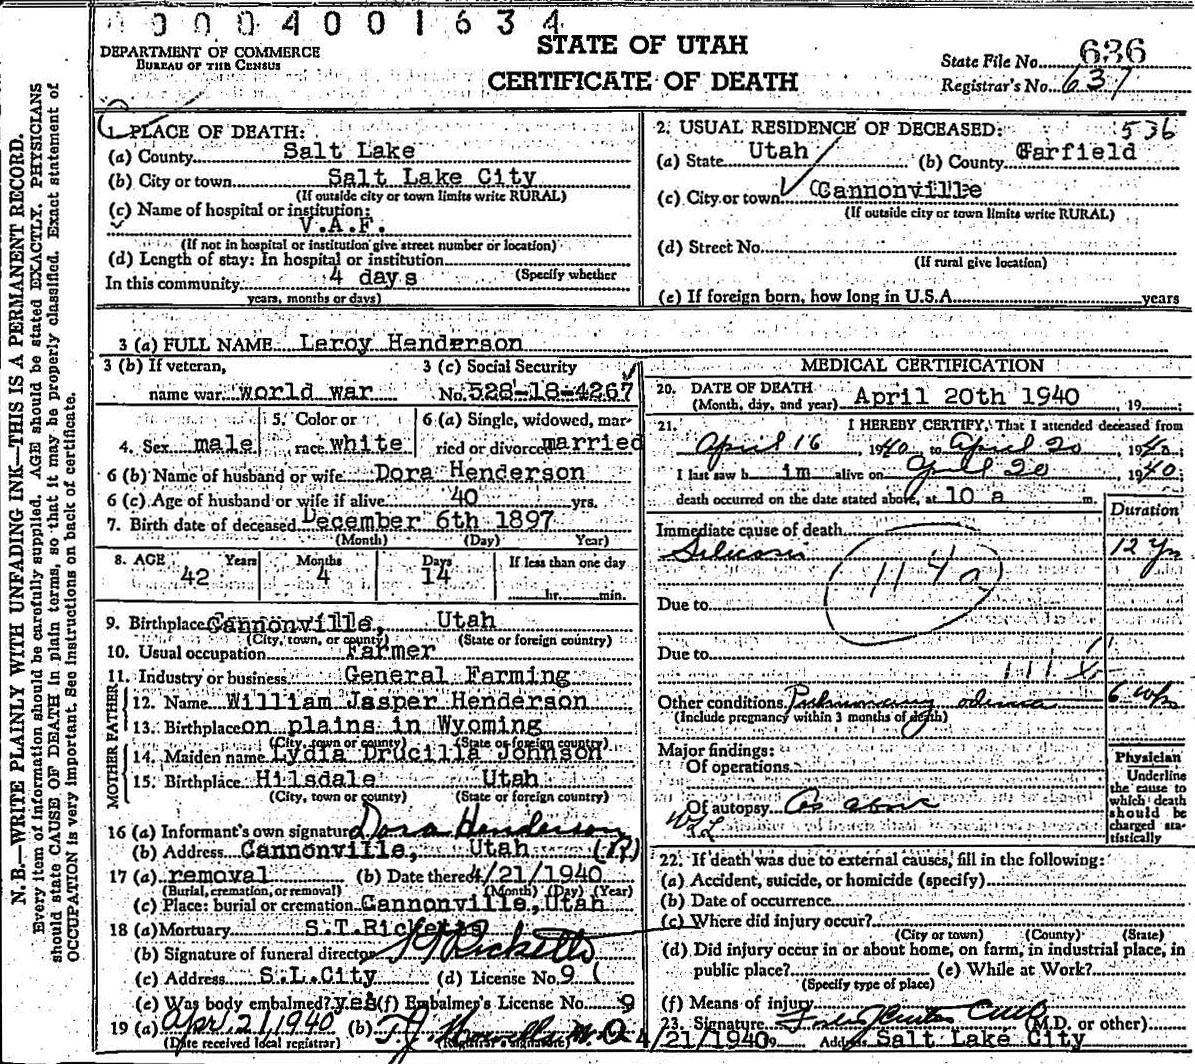 0 0 0 4 0 0 1 6 3 4
DEPARTMENT OF COMMERCE
BUREAU OF THE CENSUS
STATE OF UTAH
CERTIFICATE OF DEATH
State File No. 636
Registrar's No. 637
N. B.—WRITE PLAINLY WITH UNFADING INK—THIS IS A PERMANENT RECORD.
Every item of information should be carefully supplied. AGE should be stated EXACTLY. PHYSICIANS
should state CAUSE OF DEATH in plain terms, so that it may be properly classified. Exact statement of
OCCUPATION is very important. See instructions on back of certificate.
1. PLACE OF DEATH:
(a) County Salt Lake
(b) City or town Salt Lake City
(If outside city or town limits write RURAL)
(c) Name of hospital or institution:
V.A.F.
(If not in hospital or institution give street number or location)
(d) Length of stay: In hospital or institution
(Specify whether
In this community 4 days
years, months or days)
2. USUAL RESIDENCE OF DECEASED: 536
(a) State Utah (b) County Garfield
(c) City or town Cannonville
(If outside city or town limits write RURAL)
(d) Street No.
(If rural give location)
(e) If foreign born, how long in U.S.A. years
3 (a) FULL NAME Leroy Henderson
3 (b) If veteran, name war world war
3 (c) Social Security No. 528-18-4267
4. Sex male
5. Color or race white
6 (a) Single, widowed, mar-
ried or divorced married
6 (b) Name of husband or wife Dora Henderson
6 (c) Age of husband or wife if alive 40 yrs.
7. Birth date of deceased December 6th 1897
(Month) (Day) Year)
8. AGE Years Months Days If less than one day
42 4 14 hr. min.
9. Birthplace Cannonville, Utah
(City, town, or county) (State or foreign country)
10. Usual occupation Farmer
11. Industry or business General Farming
FATHER
12. Name William Jasper Henderson
13. Birthplace on plains in Wyoming
(City, town or county) (State or foreign country)
MOTHER
14. Maiden name Lydia Drucilla Johnson
15. Birthplace Hilsdale Utah
(City, town or county) (State or foreign country)
16 (a) Informant's own signature Dora Henderson
(b) Address Cannonville, Utah (R)
17 (a) removal (b) Date thereof 4/21/1940
(Burial, cremation, or removal) (Month) (Day) (Year)
(c) Place: burial or cremation Cannonville, Utah
18 (a) Mortuary S.T.Ricketts
(b) Signature of funeral director Ricketts
(c) Address S.L.City (d) License No. 9
(e) Was body embalmed? yes (f) Embalmer's License No. 9
19 (a) Apr 21 1940 (b)
(Date received local registrar) (Registrar's signature)
MEDICAL CERTIFICATION
20. DATE OF DEATH
(Month, day, and year) April 20th 1940, 19
21. I HEREBY CERTIFY, That I attended deceased from
April 16, 1940 to April 20, 1940.
I last saw h im alive on April 20 1940;
death occurred on the date stated above, at 10 a m.
Duration
Immediate cause of death
Silicosis 12 yrs
114a
Due to
Due to
111
Other conditions Pulmonary edema 6 wks
(Include pregnancy within 3 months of death)
Major findings:
Of operations
Of autopsy As above
Physician
Underline
the cause to
which death
should be
charged sta-
tistically
22. If death was due to external causes, fill in the following:
(a) Accident, suicide, or homicide (specify)
(b) Date of occurrence
(c) Where did injury occur?
(City or town) (County) (State)
(d) Did injury occur in or about home, on farm, in industrial place, in
public place? (e) While at Work?
(Specify type of place)
(f) Means of injury
23. Signature (M.D. or other)
4/21/1940 Address Salt Lake City